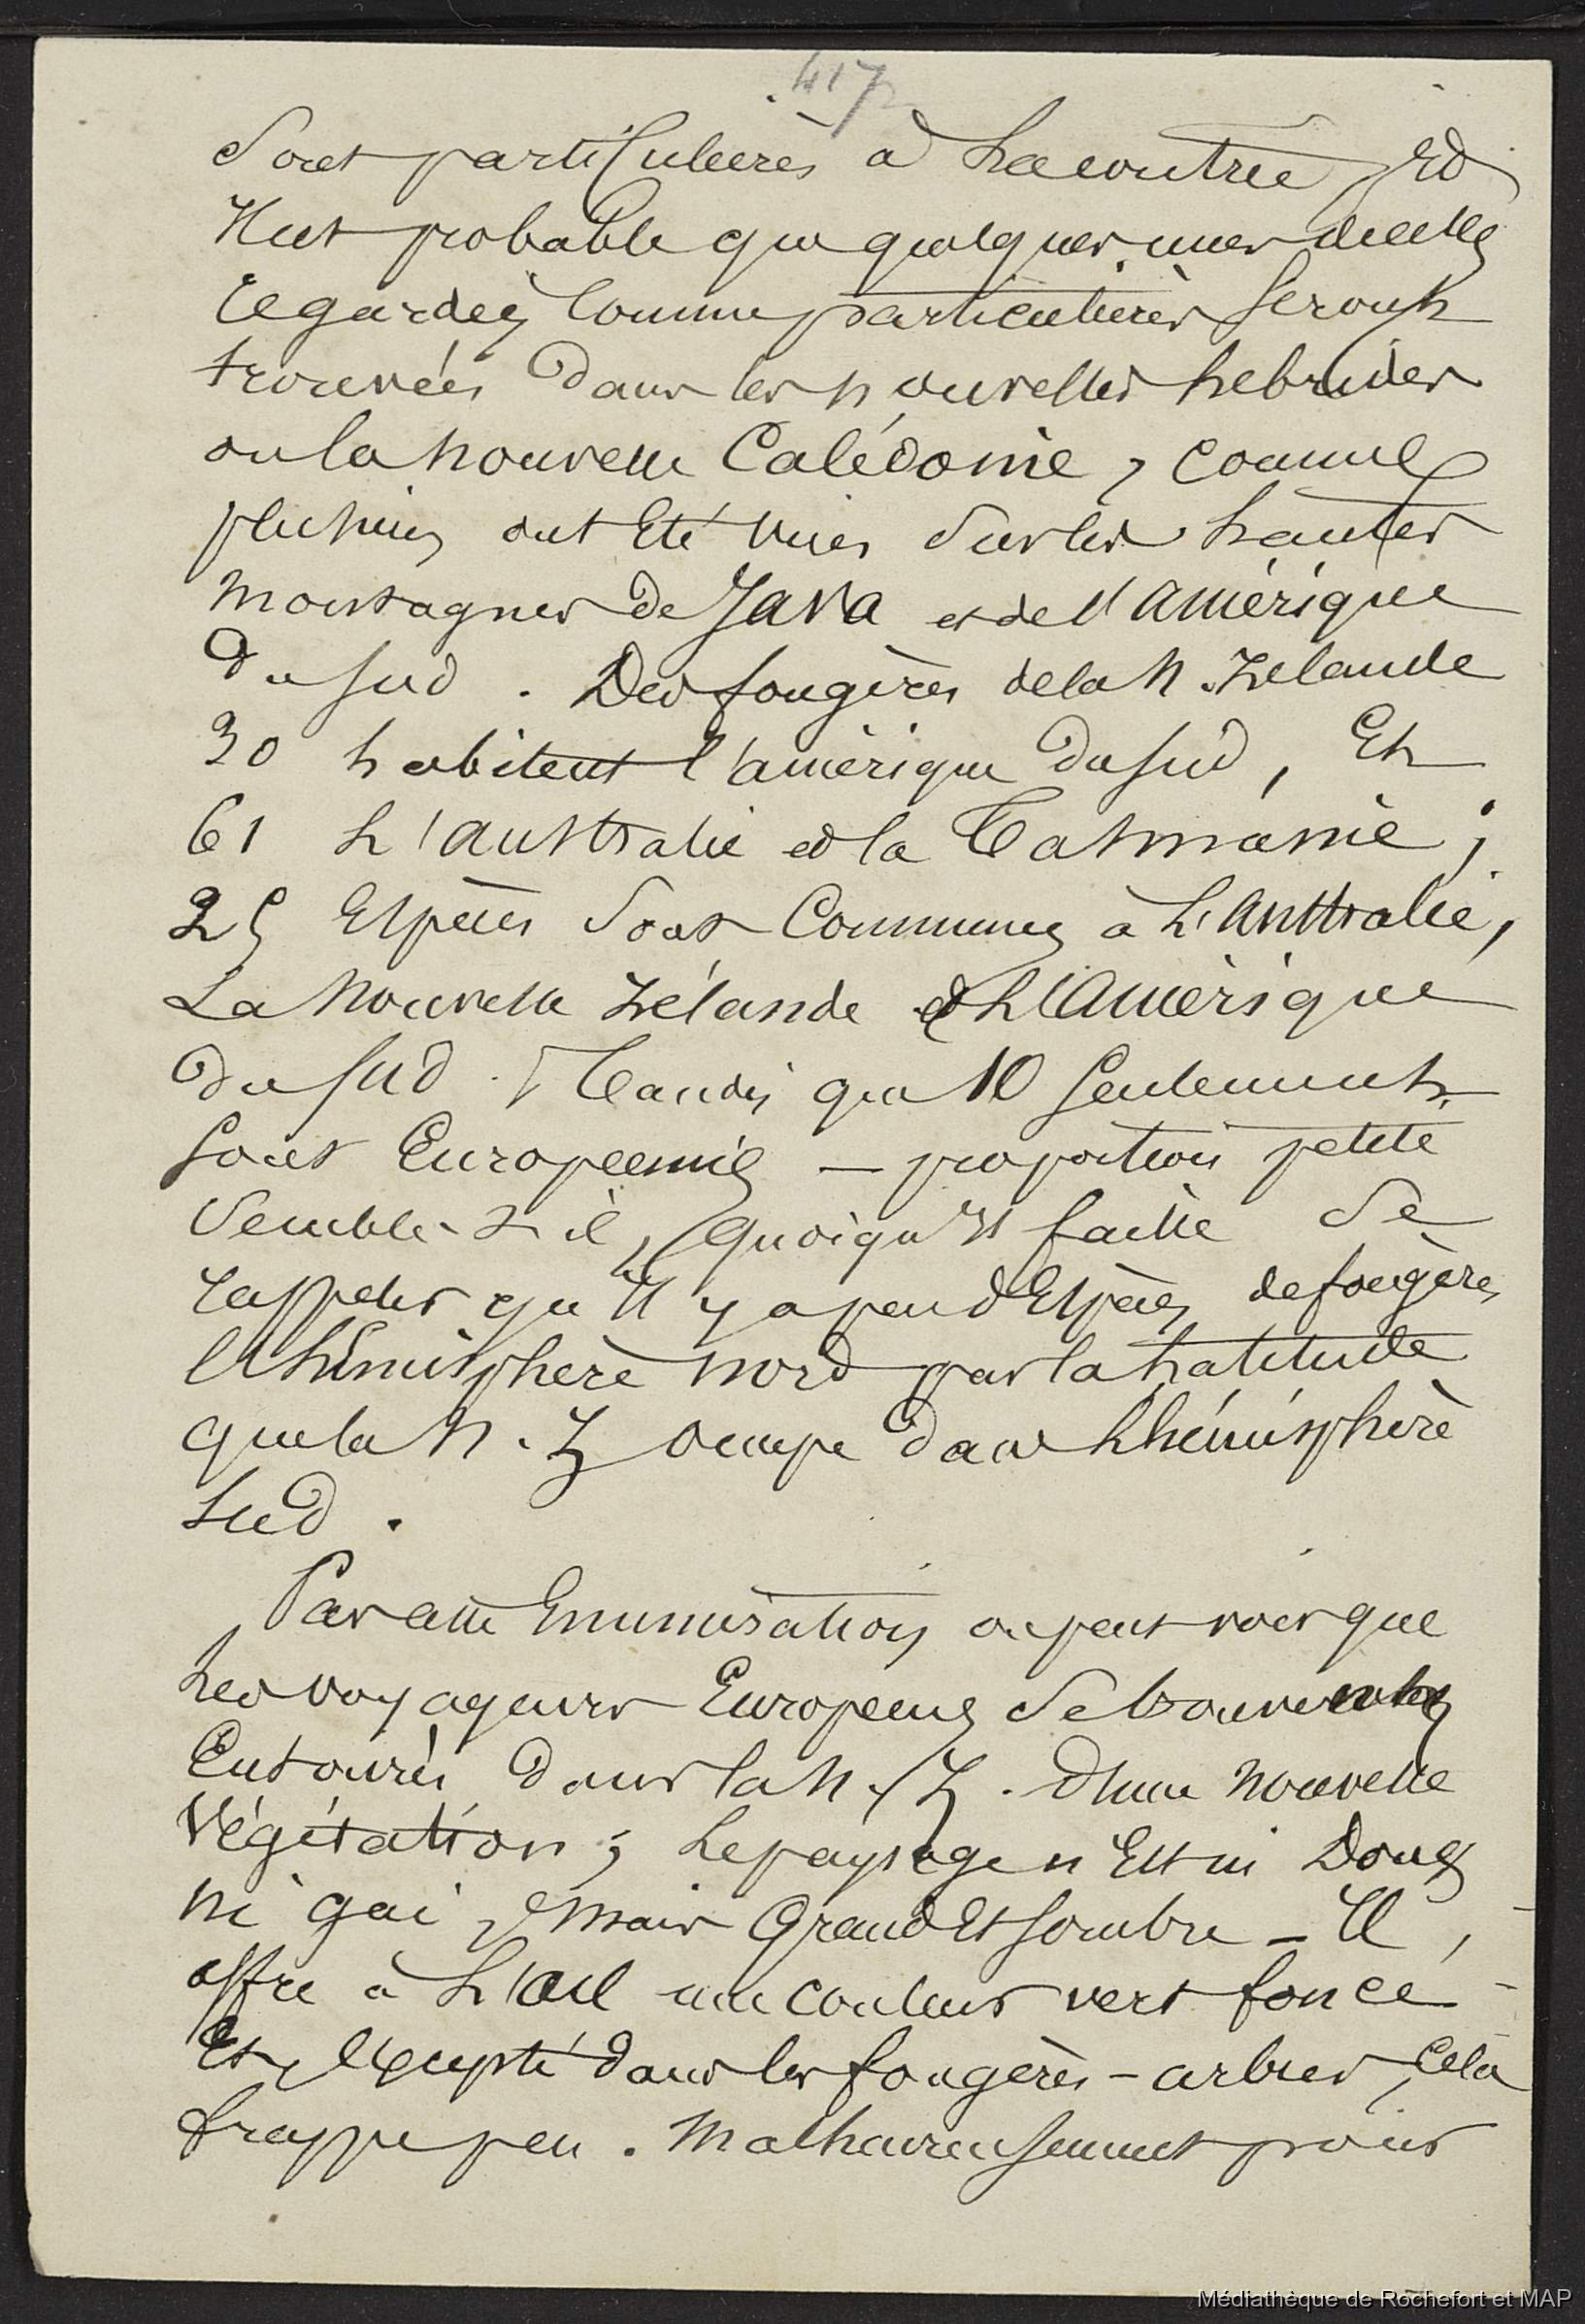 417
Sont particulières à La contrée, Et
Il est probable que quelques unes d'elles
regardées Comme particulières Seront
trouvées Dans les nouvelles hebrides
ou la nouvelle Calédonie, comme
plusieurs ont Eté vues Sur les hautes
montagnes de Java et de l'amérique
Du Sud. Des fougères de la N. Zelande
30 habitent l'amérique Du Sud, Et
61 L'australie et la Tasmanie;
25 Espèces Sont Communes à L'australie,
La Nouvelle Zélande et L'Amérique
Du Sud. Tandis que 10 Seulement
Sont Européennes — proportion petite
Semble-t-il, quoiqu'Il faille Se
rappeler qu'Il y a peu d'Espèces de fougères
hémisphère nord par la Latitude
que la N. Z occupe Dans L'hémisphère
Sud.
Par cette Enumération on peut voir que
Les voyageurs Européens Se trouvent
Entourés Dans la N. Z. D'une Nouvelle
Végétation; Le paysage n'Est ni Doux
ni gai, mais Grand Et Sombre — Il,
offre à L'oeil une couleur vert foncé
Et, Excepté dans les fougères-arbres, Cela
frappe peu. Malheureusement pour
Médiathèque de Rochefort et MAP